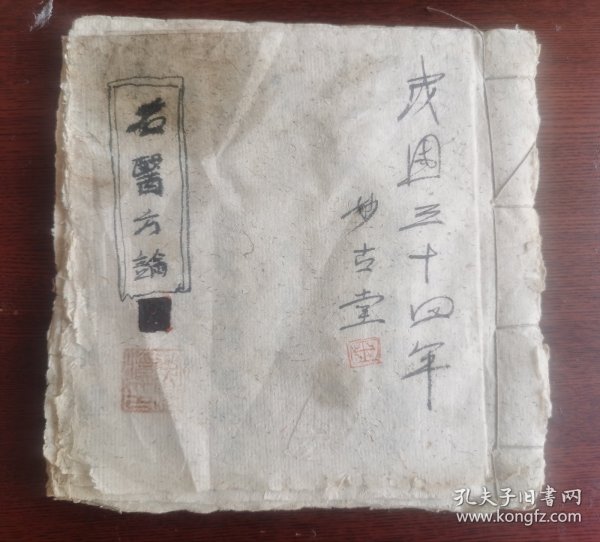 民國三十四年
妙古堂
名醫方論
孔夫子旧书网
www.kongfz.com